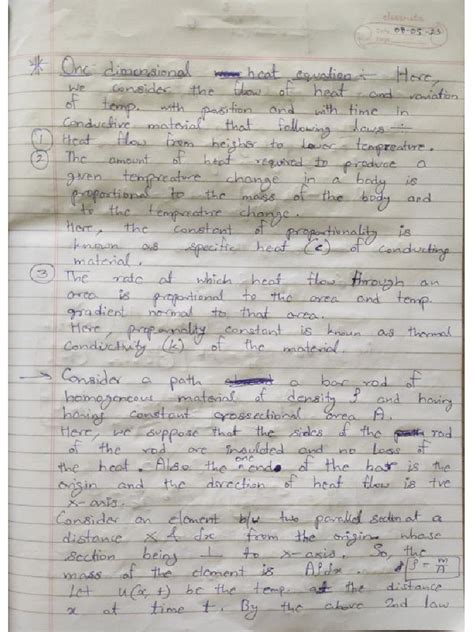 classmate
Date 08-05-23
Page
* One dimensional heat equation :- Here,
we consider the flow of heat and variation
of temp. with position and with time in
conductive material that following laws :-
① Heat flow from heigher to lower tempreature.
② The amount of heat required to produce a
given tempreature change in a body is
propotional to the mass of the body and
to the tempreature change.
Here, the constant of proportionality is
known as specific heat (c) of conducting
material.
③ The rate at which heat flow through an
area is proportional to the area and temp.
gradient normal to that area.
Here, constant is known as thermal
conductivity (k) of the material.
→ Consider a path a bar rod of
homogeneous material of density ρ and having
having constant crossectional area A.
Here, we suppose that the sides of the rod
of the rod are insulated and no loss of
the heat. Also the one end of the bar is the
origin and the direction of heat flow is +ve
x-axis.
Consider an element b/w two parallel section at a
distance x & dx from the origin whose
section being ⊥ to x-axis. So, the
mass of the element is Aρdx. ρ = m/A
Let u(x,t) be the temp. at the distance
x at time t. By the above 2nd law